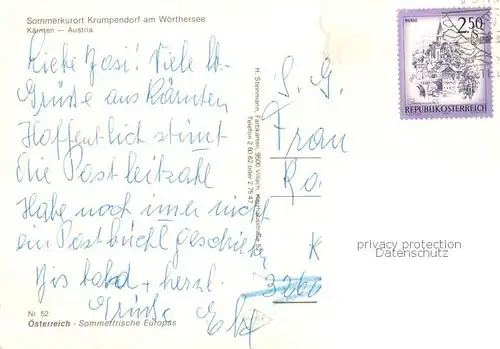 Sommerkurort Krumpendorf am Wörthersee
Kärnten — Austria
Liebe Josi! Viele lb.
Grüße aus Kärnten
Hoffentlich stimmt
die Postleitzahl
Habe noch immer nicht
ein Postbüchl geschickt
Bis bald + herzl.
Grüße
Nr. 52
Österreich - Sommerfrische Europas
H. Steinmann, Farbkarten, 9500 Villach,
Telefon 2 60 62 oder 2 75 47
S. G.
Frau
Ro.
K
3260
MURAU
2.50
S
REPUBLIK ÖSTERREICH
privacy protection
Datenschutz